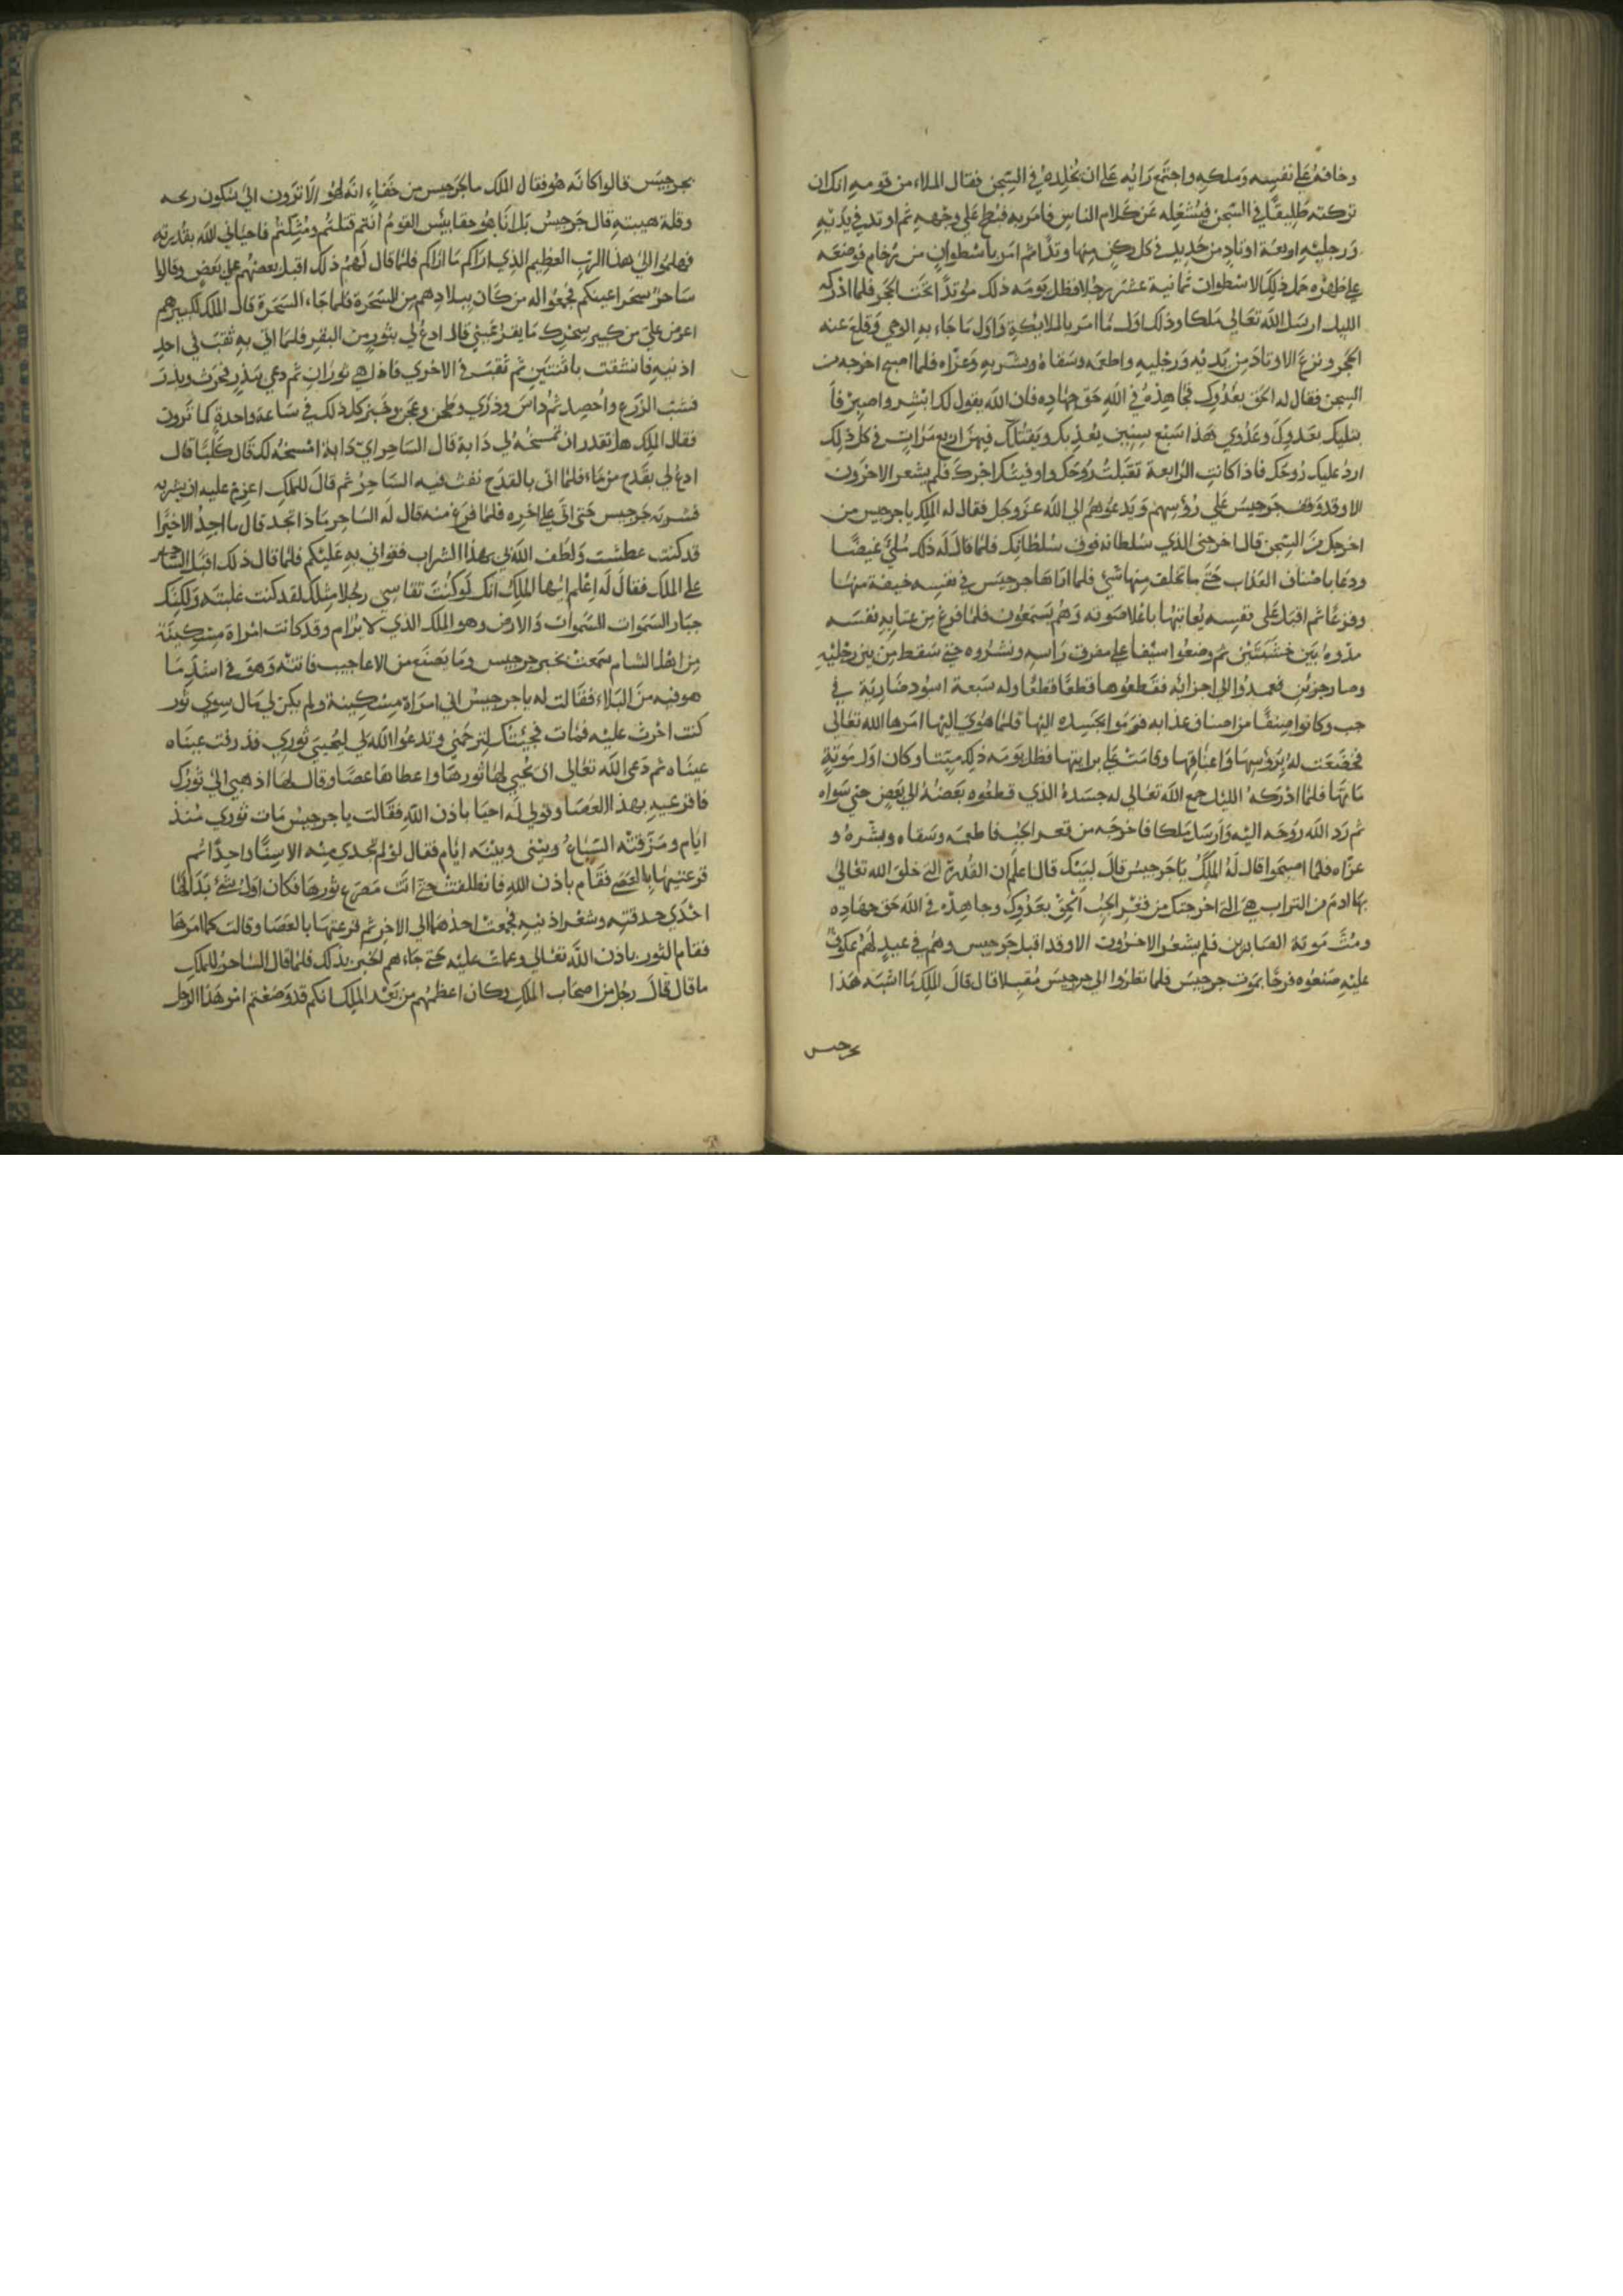 وخافه على نفسه وملكه واجتمع رايه على ان يخلده في السجن فقال الملاء من قومه انك ان
تركته طليقًا في السجن فيشغله عن كلام الناس فامر به فبطح على وجهه ثم اوتد في يديه
ورجليه اربعة اوتاد من حديد في كل ركن منها وتد ثم امر باسطوان من رخام فوضعه
على ظهره حمل ذلك الاسطوان ثمانية عشر رجلا فظل يومه ذلك موتدًا تحت الحجر فلما ادركه
الليل ارسل الله تعالى ملكا وذلك اول ما امر بالملايكة واول ما جاء به الوحي وقلع عنه
الحجر ونزع الاوتاد من يديه ورجليه واطعمه وسقاه وبشر به وعزاه فلما اصبح اخرجه من
السجن فقال له الحق بعدوك فجاهده في الله حق جهاده فان الله يقول لك ابشر واصبر فا
بتليك بعدوك وعدوي هذا سبع سنين يعذبك ويقتلك فيهن اربع مرات في كل ذلك
ارد عليك روحك فاذا كانت الرابعة تقبلت روحك واوفيتك اجرك فلم يشعر الاخرون
الا وقد وقف جرجيس على رؤسهم ويدعوهم الى الله عز وجل فقال له الملك يا جرجيس من
اخرجك من السجن قال اخرجني الذي سلطانه فوق سلطانك فلما قال له ذلك ملئ غيضًا
ودعا باصناف العذاب حتى ما تخلف منها شئ فلما راها جرجيس في نفسه خيفة منها
وفزعًا ثم اقبل على نفسه يعاتبها باعلا صوته وهم يسمعون فلما فرغ من عتابه نفسه
مدوه بين خشبتين ثم وضعوا سيفا على مفرق راسه ونشروه حتى سقط من بين رجليه
وصار جزئين فعمدوا الى اجزائه فقطعوها قطعًا قطعًا وله سبعة اسود ضارية في
جب وكانوا صنفًا من اصناف عذابه فرموا بجسده اليها فلما هوي اليها امرها الله تعالى
فخضعت له برؤسها واعناقها وقامت على براثنها فظل يومه ذلك ميتا وكان اول موتة
ماتها فلما ادركه الليل جمع الله تعالى له جسده الذي قطعوه بعضه الى بعض حتى سواه
ثم رد الله روحه اليه وارسل ملكا فاخرجه من قعر الجب فاطعمه وسقاه وبشره و
عزاه فلما اصبحوا قال له الملك يا جرجيس قال لبيك قال اعلم ان القدرة التي خلق الله تعالى
بها ادم من التراب هي التي اخرجتك من قعر الجب الحق بعدوك وجاهده في الله حق جهاده
ومت موتة الصابرين فلم يشعر الاخرون الا وقد اقبل جرجيس وهم في عيد لهم عكوف
عليه صنعوه فرحًا بموت جرجيس فلما نظروا الى جرجيس مقبلا قال قال الملك ما اشبه هذا
بجرجيس
بجرجيس قالوا كانه هو فقال الملك ما بجرجيس من خفاء انه لهو الا ترون الى سكون ريحه
وقلة هيبته قال جرجيس بل انا هو حقا بئس القوم انتم قتلتم ومثلتم فاحياني الله بقدرته
فهلموا الى هذا الرب العظيم الذي اراكم ما اراكم فلما قال لهم ذلك اقبل بعضهم على بعض وقالوا
ساحر سحر اعينكم فجمعوا له من كان ببلادهم من السحرة فلما جاء السحرة قال الملك لكبيرهم
اعرض علي من كبير سحرك ما يقر عيني قال ادع لي بثور من البقر فلما اتى به ثقب في احد
اذنيه فانشقت باثنتين ثم ثقب في الاخرى فاذا هي ثوران ثم دعى ببذر فحرث وبذر
فشب الزرع واحصد ثم داس وذرى وطحن وعجن وخبز كل ذلك في ساعة واحدة كما ترون
فقال الملك هل تقدر ان تمسخه لي دابة قال الساحر اي دابة امسخه لك قال كلبًا قال
ادع لي بقدح من ماء فلما اتى بالقدح نفث فيه الساحر ثم قال للملك اعزم عليه ان يشربه
فشربه جرجيس حتى اتى على اخره فلما فرغ منه قال له الساحر ماذا تجد قال ما اجد الا خيرًا
قد كنت عطشت ولطف الله لي بهذا الشراب فقواني به عليكم فلما قال ذلك اقبل الساحر
على الملك فقال له اعلم ايها الملك انك لو كنت تقاسي رجلا مثلك لقد كنت غلبته ولكنك
جبار السموات السموات والارض وهو الملك الذي لا يرام وقد كانت امراة مسكينة
من اهل الشام سمعت بخبر جرجيس وما يصنع من الاعاجيب فاتته وهو في اشد ما
هو فيه من البلاء فقالت له يا جرجيس اني امراة مسكينة ولم يكن لي مال سوى ثور
كنت احرث عليه فمات فجئتك لترحمني وتدعوا الله لي ليحيي ثوري فذرفت عيناه
عيناه ثم دعى الله تعالى ان يحيي لها ثورها واعطاها عصا وقال لها اذهبي الى ثورك
فاقرعيه بهذا العصا وقولي له احيا باذن الله فقالت يا جرجيس مات ثوري منذ
ايام ومزقته السباع وبيني وبينه ايام فقال لو لم تجدي منه الا سنًا واحدًا ثم
قرعتيها بالعصى فقام باذن الله فانطلقت حتى اتت مصرع ثورها فكان اول شئ بدا لها
احدى حدقتيه وشعر اذنيه فجمعت احدهما الى الاخر ثم قرعتها بالعصا وقالت كما امرها
فقام الثور باذن الله تعالى وعملت عليه حتى جاءهم الخبر بذلك فلما قال الساحر للملك
ما قال قال رجل من اصحاب الملك وكان اعظمهم من بعد الملك انكم قد وضعتم امر هذا الرجل